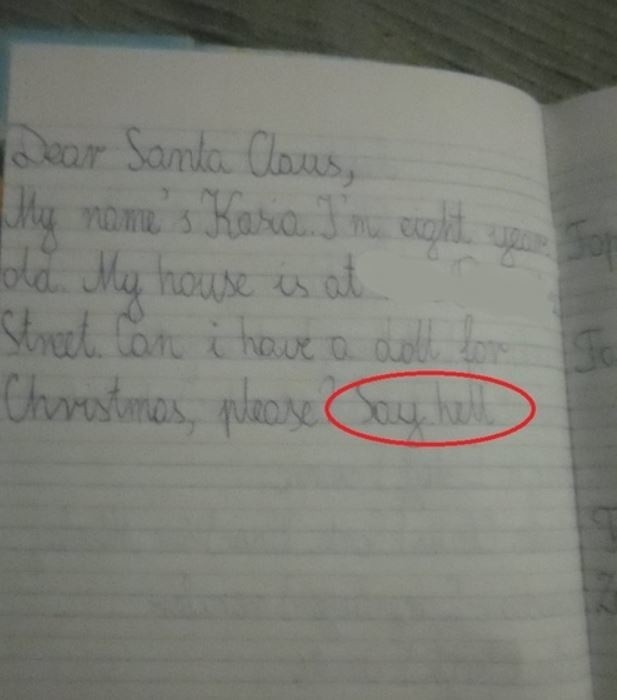 Dear Santa Claus,
My name's Kasia. I'm eight year
old. My house is at
Street. Can i have a doll for
Christmas, please? Say hell